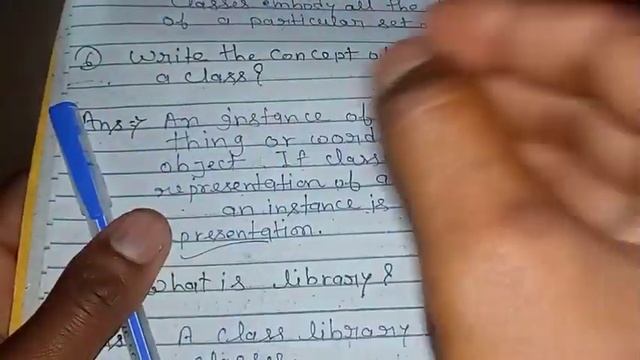 Classes embody all the
of a particular set
⑥ Write the concept of
a class?
Ans:⇒ An instance of
thing or word
object. If class
representation of a
an instance is
presentation.
What is library?
A class library